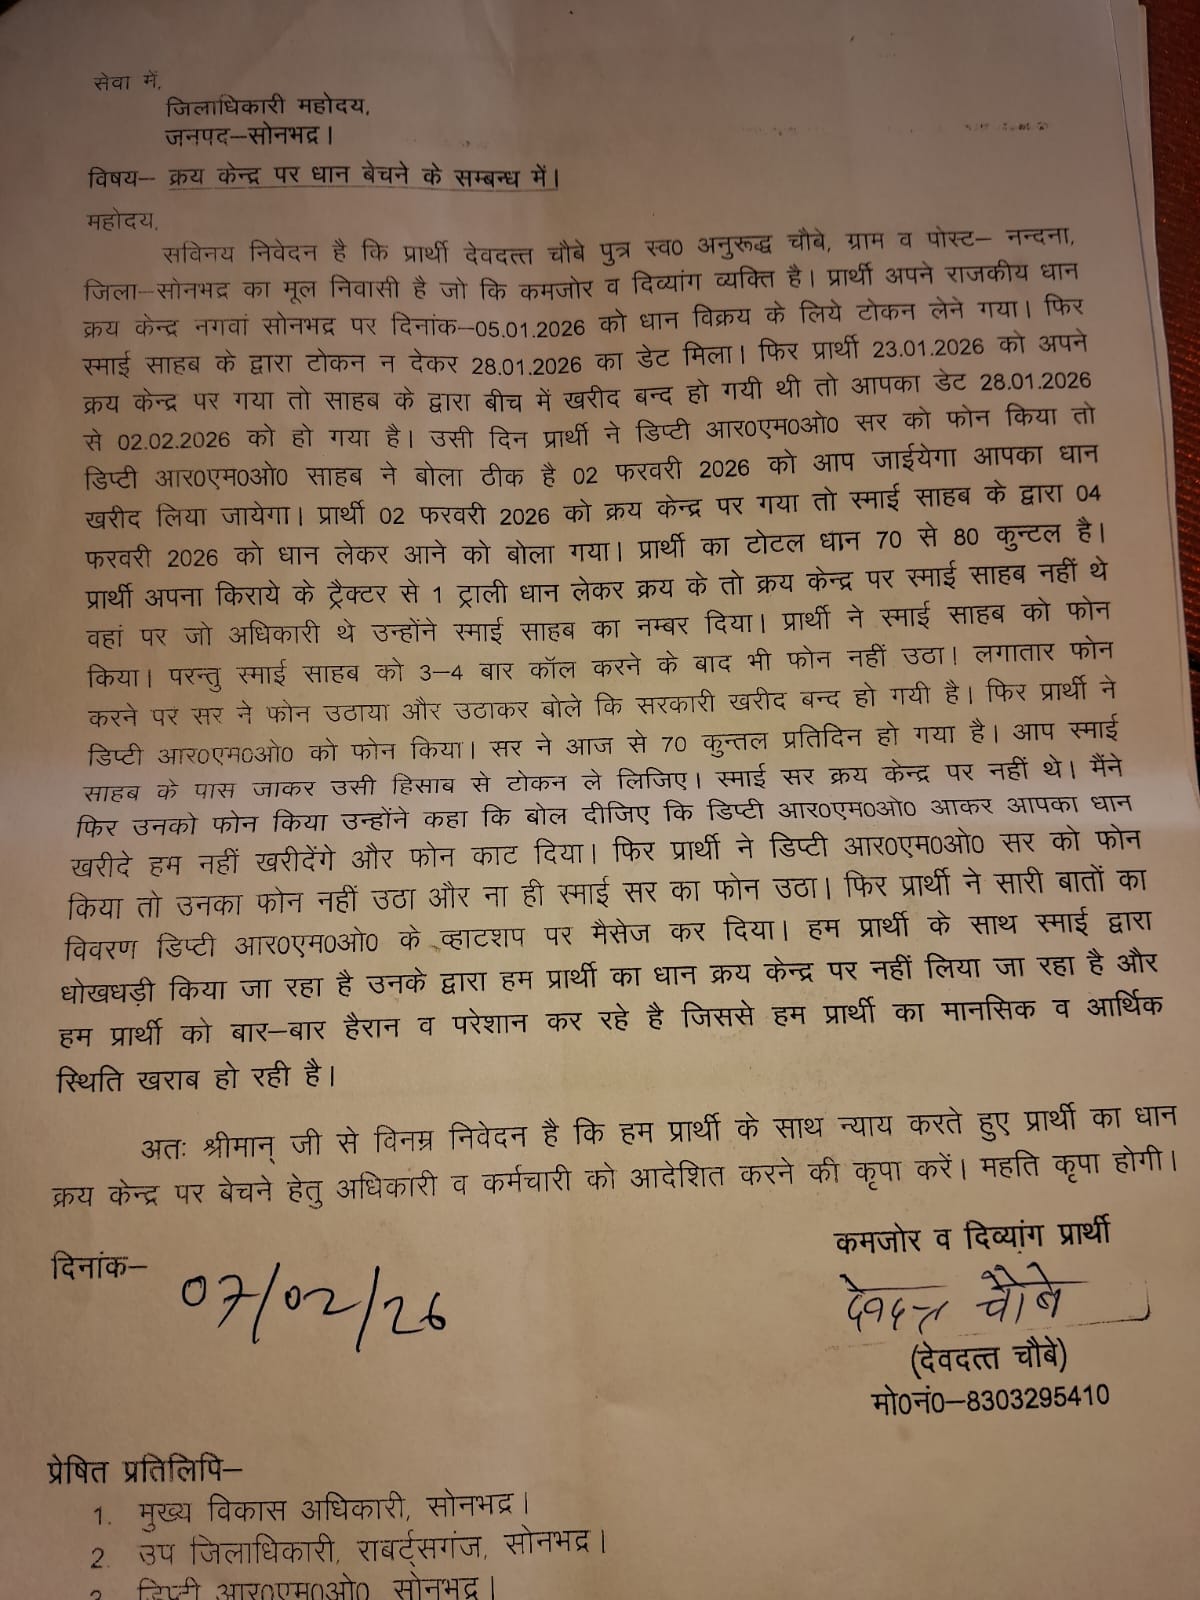 सेवा में,
जिलाधिकारी महोदय,
जनपद–सोनभद्र।
विषय– क्रय केन्द्र पर धान बेचने के सम्बन्ध में।
महोदय,
सविनय निवेदन है कि प्रार्थी देवदत्त चौबे पुत्र स्व0 अनुरूद्ध चौबे, ग्राम व पोस्ट– नन्दना,
जिला–सोनभद्र का मूल निवासी है जो कि कमजोर व दिव्यांग व्यक्ति है। प्रार्थी अपने राजकीय धान
क्रय केन्द्र नगवां सोनभद्र पर दिनांक–05.01.2026 को धान विक्रय के लिये टोकन लेने गया। फिर
स्माई साहब के द्वारा टोकन न देकर 28.01.2026 का डेट मिला। फिर प्रार्थी 23.01.2026 को अपने
क्रय केन्द्र पर गया तो साहब के द्वारा बीच में खरीद बन्द हो गयी थी तो आपका डेट 28.01.2026
से 02.02.2026 को हो गया है। उसी दिन प्रार्थी ने डिप्टी आर0एम0ओ0 सर को फोन किया तो
डिप्टी आर0एम0ओ0 साहब ने बोला ठीक है 02 फरवरी 2026 को आप जाईयेगा आपका धान
खरीद लिया जायेगा। प्रार्थी 02 फरवरी 2026 को क्रय केन्द्र पर गया तो स्माई साहब के द्वारा 04
फरवरी 2026 को धान लेकर आने को बोला गया। प्रार्थी का टोटल धान 70 से 80 कुन्टल है।
प्रार्थी अपना किराये के ट्रैक्टर से 1 ट्राली धान लेकर क्रय के तो क्रय केन्द्र पर स्माई साहब नहीं थे
वहां पर जो अधिकारी थे उन्होंने स्माई साहब का नम्बर दिया। प्रार्थी ने स्माई साहब को फोन
किया। परन्तु स्माई साहब को 3–4 बार कॉल करने के बाद भी फोन नहीं उठा। लगातार फोन
करने पर सर ने फोन उठाया और उठाकर बोले कि सरकारी खरीद बन्द हो गयी है। फिर प्रार्थी ने
डिप्टी आर0एम0ओ0 को फोन किया। सर ने आज से 70 कुन्तल प्रतिदिन हो गया है। आप स्माई
साहब के पास जाकर उसी हिसाब से टोकन ले लिजिए। स्माई सर क्रय केन्द्र पर नहीं थे। मैंने
फिर उनको फोन किया उन्होंने कहा कि बोल दीजिए कि डिप्टी आर0एम0ओ0 आकर आपका धान
खरीदे हम नहीं खरीदेंगे और फोन काट दिया। फिर प्रार्थी ने डिप्टी आर0एम0ओ0 सर को फोन
किया तो उनका फोन नहीं उठा और ना ही स्माई सर का फोन उठा। फिर प्रार्थी ने सारी बातों का
विवरण डिप्टी आर0एम0ओ0 के व्हाटशप पर मैसेज कर दिया। हम प्रार्थी के साथ स्माई द्वारा
धोखधड़ी किया जा रहा है उनके द्वारा हम प्रार्थी का धान क्रय केन्द्र पर नहीं लिया जा रहा है और
हम प्रार्थी को बार–बार हैरान व परेशान कर रहे है जिससे हम प्रार्थी का मानसिक व आर्थिक
स्थिति खराब हो रही है।
अतः श्रीमान् जी से विनम्र निवेदन है कि हम प्रार्थी के साथ न्याय करते हुए प्रार्थी का धान
क्रय केन्द्र पर बेचने हेतु अधिकारी व कर्मचारी को आदेशित करने की कृपा करें। महति कृपा होगी।
दिनांक– 07/02/26
कमजोर व दिव्यांग प्रार्थी
देवदत्त चौबे
(देवदत्त चौबे)
मो0नं0–8303295410
प्रेषित प्रतिलिपि–
1. मुख्य विकास अधिकारी, सोनभद्र।
2. उप जिलाधिकारी, राबर्ट्सगंज, सोनभद्र।
3. डिप्टी आर0एम0ओ0, सोनभद्र।